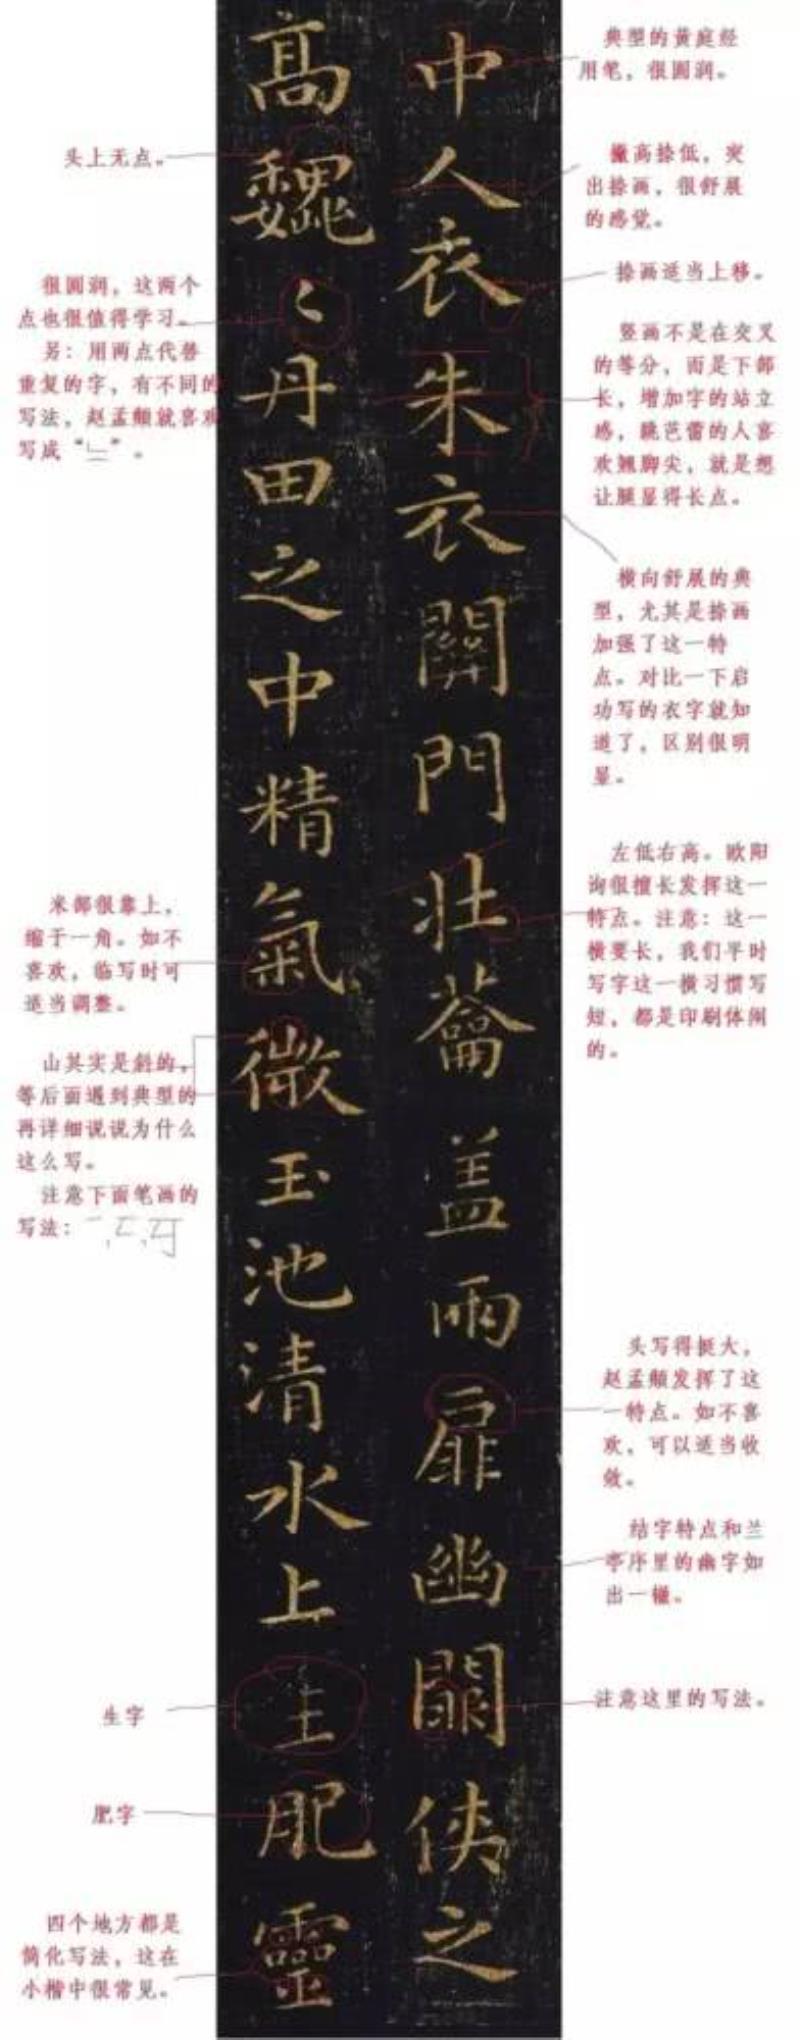 中人衣朱衣關門壮蘥盖兩扉幽闕侠之
高魏〻丹田之中精氣微玉池清水上生肥靈
典型的黄庭经
用笔，很圆润。
撇高捺低，突
出捺画，很舒展
的感觉。
捺画适当上移。
竖画不是在交叉
的等分，而是下部
长，增加字的站立
感，跳芭蕾的人喜
欢翘脚尖，就是想
让腿显得长点。
横向舒展的典
型，尤其是捺画
加强了这一特
点。对比一下启
功写的衣字就知
道了，区别很明
显。
左低右高。欧阳
询很擅长发挥这一
特点。注意：这一
横要长，我们平时
写字这一横习惯写
短，都是印刷体闹
的。
头写得挺大，
赵孟頫发挥了这
一特点。如不喜
欢，可以适当收
敛。
结字特点和兰
亭序里的幽字如
出一辙。
注意这里的写法。
头上无点。
很圆润，这两个
点也很值得学习。
另：用两点代替
重复的字，有不同的
写法，赵孟頫就喜欢
写成“”。
米部很靠上，
缩于一角。如不
喜欢，临写时可
适当调整。
山其实是斜的，
等后面遇到典型的
再详细说说为什么
这么写。
注意下面笔画的
写法：
生字
肥字
四个地方都是
简化写法，这在
小楷中很常见。